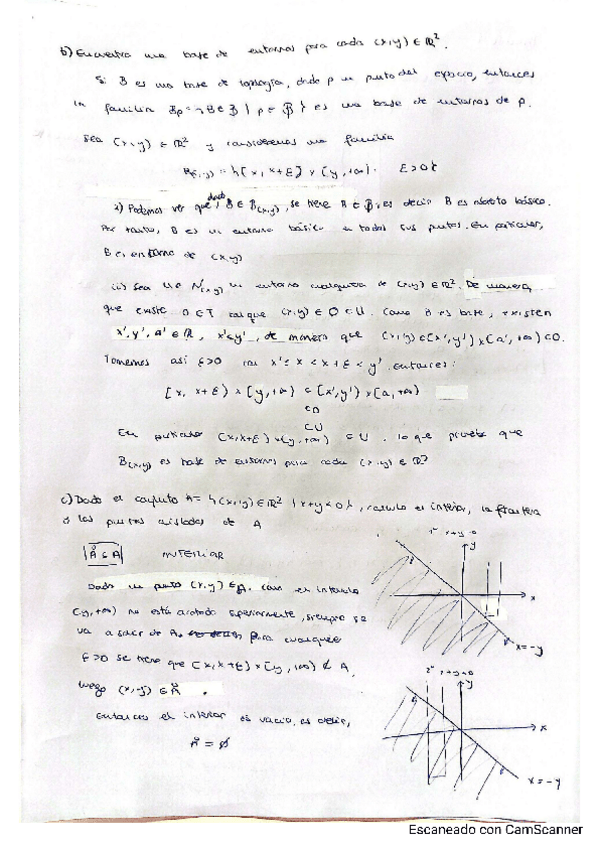 b) Encuentra una base de entornos para cada (x,y) ∈ ℝ².
Si B es una base de topología, dado p un punto del espacio, entonces
la familia Bp = {B ∈ B | p ∈ B} es una base de entornos de p.
Sea (x,y) ∈ ℝ² y consideremos una familia
B(x,y) = {[x, x+ε) × [y, +∞). ε>0}
i) Podemos ver que, dado B ∈ B(x,y), se tiene B ∈ B, es decir B es abierto básico.
Por tanto, B es un entorno básico en todos sus puntos. En particular,
B es entorno de (x,y)
ii) Sea U ∈ N(x,y) un entorno cualquiera de (x,y) ∈ ℝ². De manera
que existe O ∈ T tal que (x,y) ∈ O ⊂ U. Como B es base, existen
x', y', a' ∈ ℝ, x'<y', de manera que (x,y) ∈ [x',y') × [a', +∞) ⊂ O.
Tomemos así ε>0 con x' ≤ x < x+ε < y'. entonces:
[x, x+ε) × [y,+∞) ⊂ [x',y') × [a,+∞)
⊂ O
⊂ U
En particular [x,x+ε) × [y,+∞) ⊂ U. lo que prueba que
B(x,y) es base de entornos para cada (x,y) ∈ ℝ²
c) Dado el conjunto A = {(x,y) ∈ ℝ² | x+y<0}, calcula el interior, la frontera
o los puntos aislados de A
Å ⊂ A INTERIOR
Dado un punto (x,y) ∈ A, como el intervalo
[y,+∞) no está acotado superiormente, siempre se
va a salir de A. para cualquier
ε>0 se tiene que [x,x+ε) × [y,+∞) ⊄ A,
luego (x,y) ∉ Å.
Entonces el interior es vacío, es decir,
Å = ∅
1º x+y=0
y
x
x=-y
2º x+y=0
y
x
x=-y
Escaneado con CamScanner